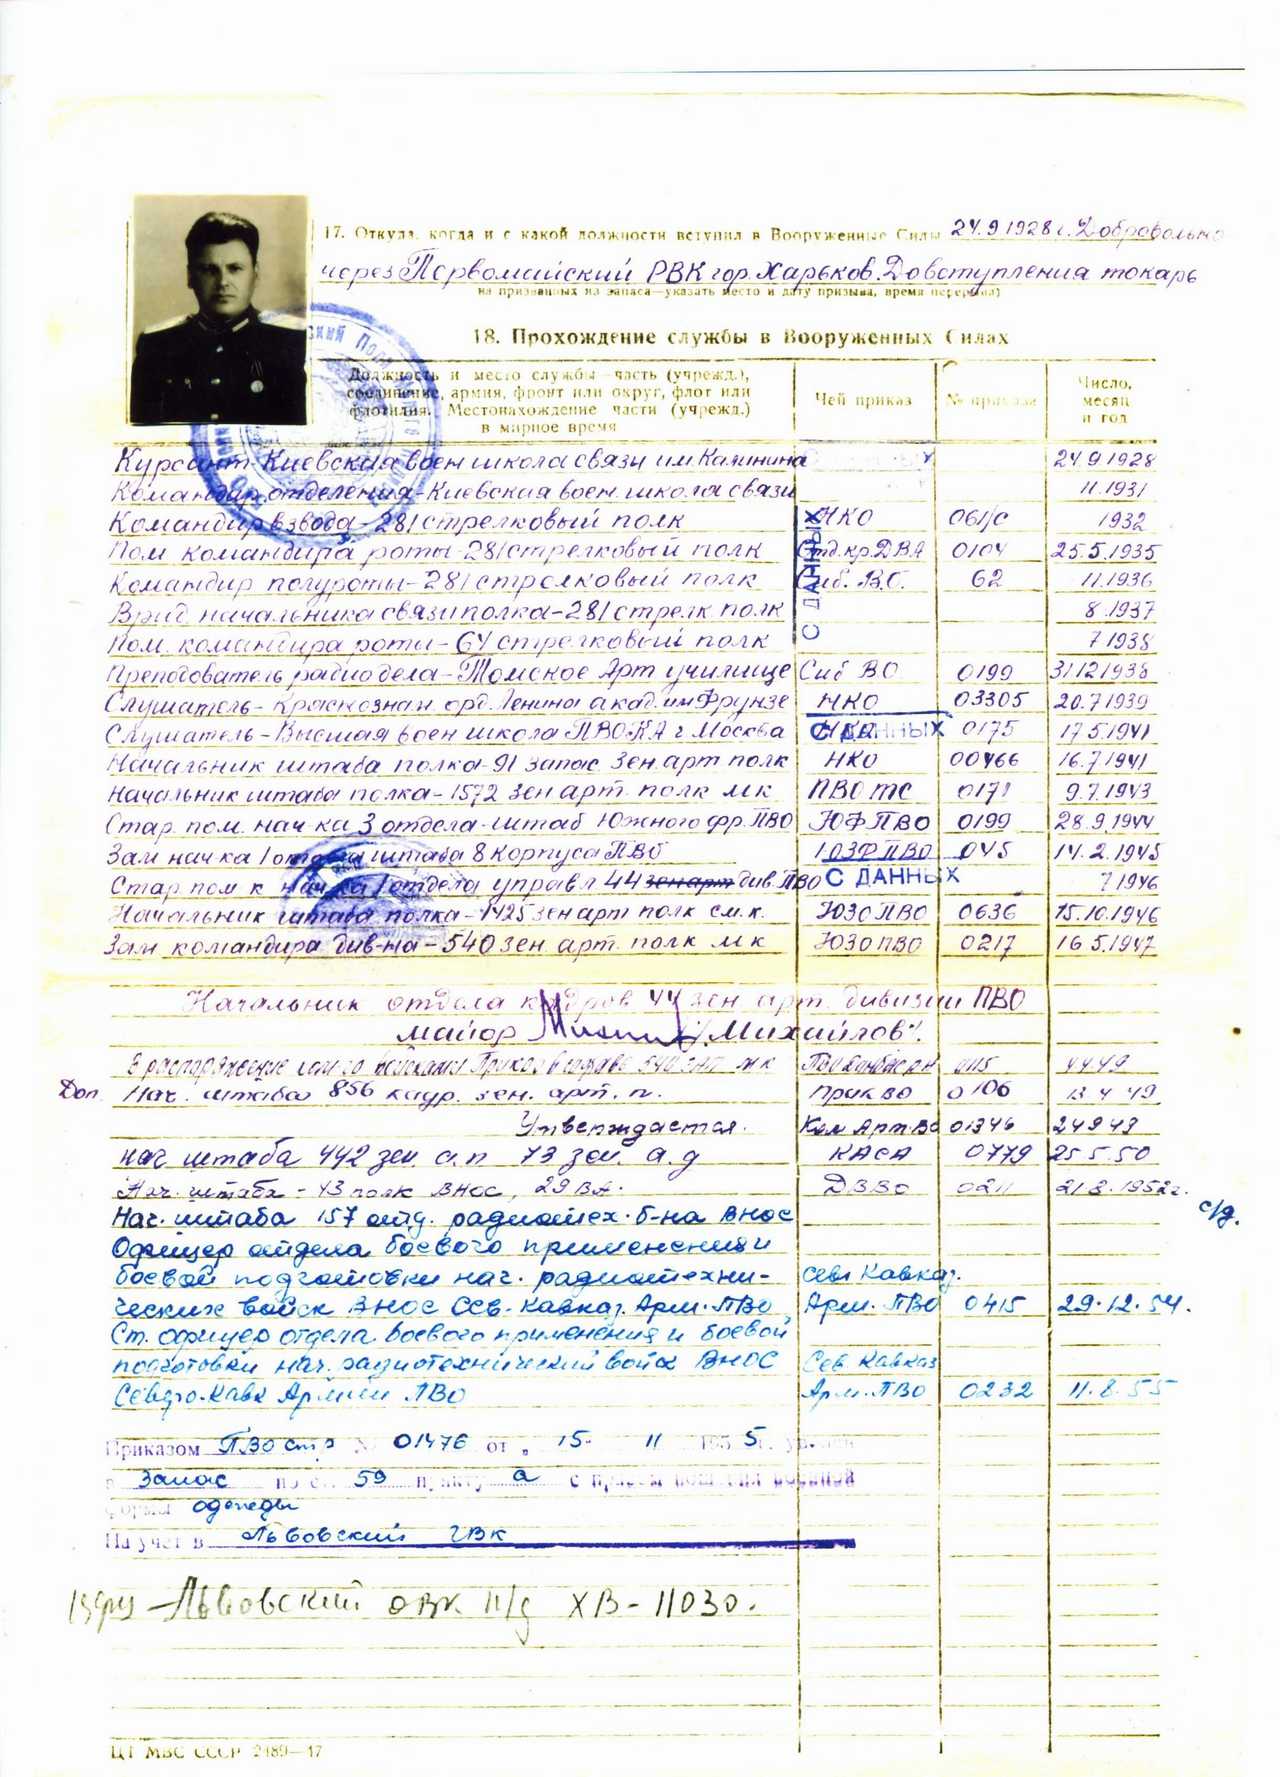 17. Откуда, когда и с какой должности вступил в Вооруженные Силы 24.9 1928 г. Добровольно
через Первомайский РВК гор. Харьков. До вступления токарь
на призванных из запаса—указать место и дату призыва, время перерыва)
18. Прохождение службы в Вооруженных Силах
Должность и место службы—часть (учрежд.), соединение, армия, фронт или округ, флот или флотилия. Местонахождение части (учрежд.) в мирное время
Чей приказ
№ приказа
Число, месяц и год
Курсант-Киевская воен школа связи им. Калинина 24.9.1928
Командир отделения-Киевская воен. школа связи 11.1931
Командир взвода-281 стрелковый полк НКО 061/с 1932
Пом командира роты-281 стрелковый полк Отд.кр.ДВА 0104 25.5.1935
Командир полуроты-281 стрелковый полк Сиб. В.О. 62 11.1936
Врид начальника связи полка-281 стрелк полк 8.1937
Пом. командира роты-64 стрелковый полк 7 1938
С ДАННЫХ
Преподователь радиодела-Томское Арт училище Сиб ВО 0199 31/12 1938
Слушатель-Краснознам. орд. Ленина акад. им Фрунзе НКО 03305 20.7 1939
Слушатель-Высшая воен школа ПВО.КА г Москва НКО 0175 17.5.1941
С ДАННЫХ
Начальник штаба полка-91 запас. зен. арт полк НКО 00466 16.7 1941
Начальник штаба полка-1572 зен арт. полк м к ПВО ТС 0171 9.7.1943
Стар. пом. нач-ка 3 отдела-штаб Южного фр. ПВО ЮФ ПВО 0199 28.9.1944
Зам нач-ка 1 отдела штаба 8 Корпуса ПВО ЮЗФ ПВО 045 14.2.1945
Стар. пом к нач-ка 1 отдела управл 44 зен арт див. ПВО 7 1946
С ДАННЫХ
Начальник штаба полка-1425 зен арт полк см.к. ЮЗО ПВО 0636 15.10.1946
Зам командира див-на-540 зен. арт. полк м к ЮЗО ПВО 0217 16 5.1947
Начальник отдела кадров 44 зен арт. дивизии ПВО
майор /Михайлов/.
В распоряжение 540 м к 0115 4.4.49
Доп. Нач. штаба 856 кадр. зен. арт. п. ПрикВО 0106 13 4 49
Утверждается. Ком Арт.ВО 01346 24 9 43
нач штаба 442 зен. а.п 73 зен. а.д КАСА 0779 25.5.50
Нач. штаба-43 полк ВНОС, 29 ВА. ДВВО 0211 21.3.1952г.
с/д.
Нач. штаба 157 отд. радиотех. б-на ВНОС
Офицер отдела боевого применения и
боевой подготовки нач. радиотехни- Сев Кавказ.
ческих войск ВНОС Сев-Кавказ. Арм. ПВО Арм. ПВО 0415 29.12.54.
Ст. офицер отдела боевого применения и боевой
подготовки нач. радиотехнический войск ВНОС Сев Кавказ
Северо-Кавк Армии ПВО Арм. ПВО 0232 11.8.55
Приказом ПВО стр № 01476 от „ 15- 11 1955 г. уволен
в запас по ст. 59 пункту а с правом ношения военной
формы одежды
На учет в Львовский ГВК
Львовский ОВК п/д ХВ-11030.
ЦТ МВС СССР 2489—47